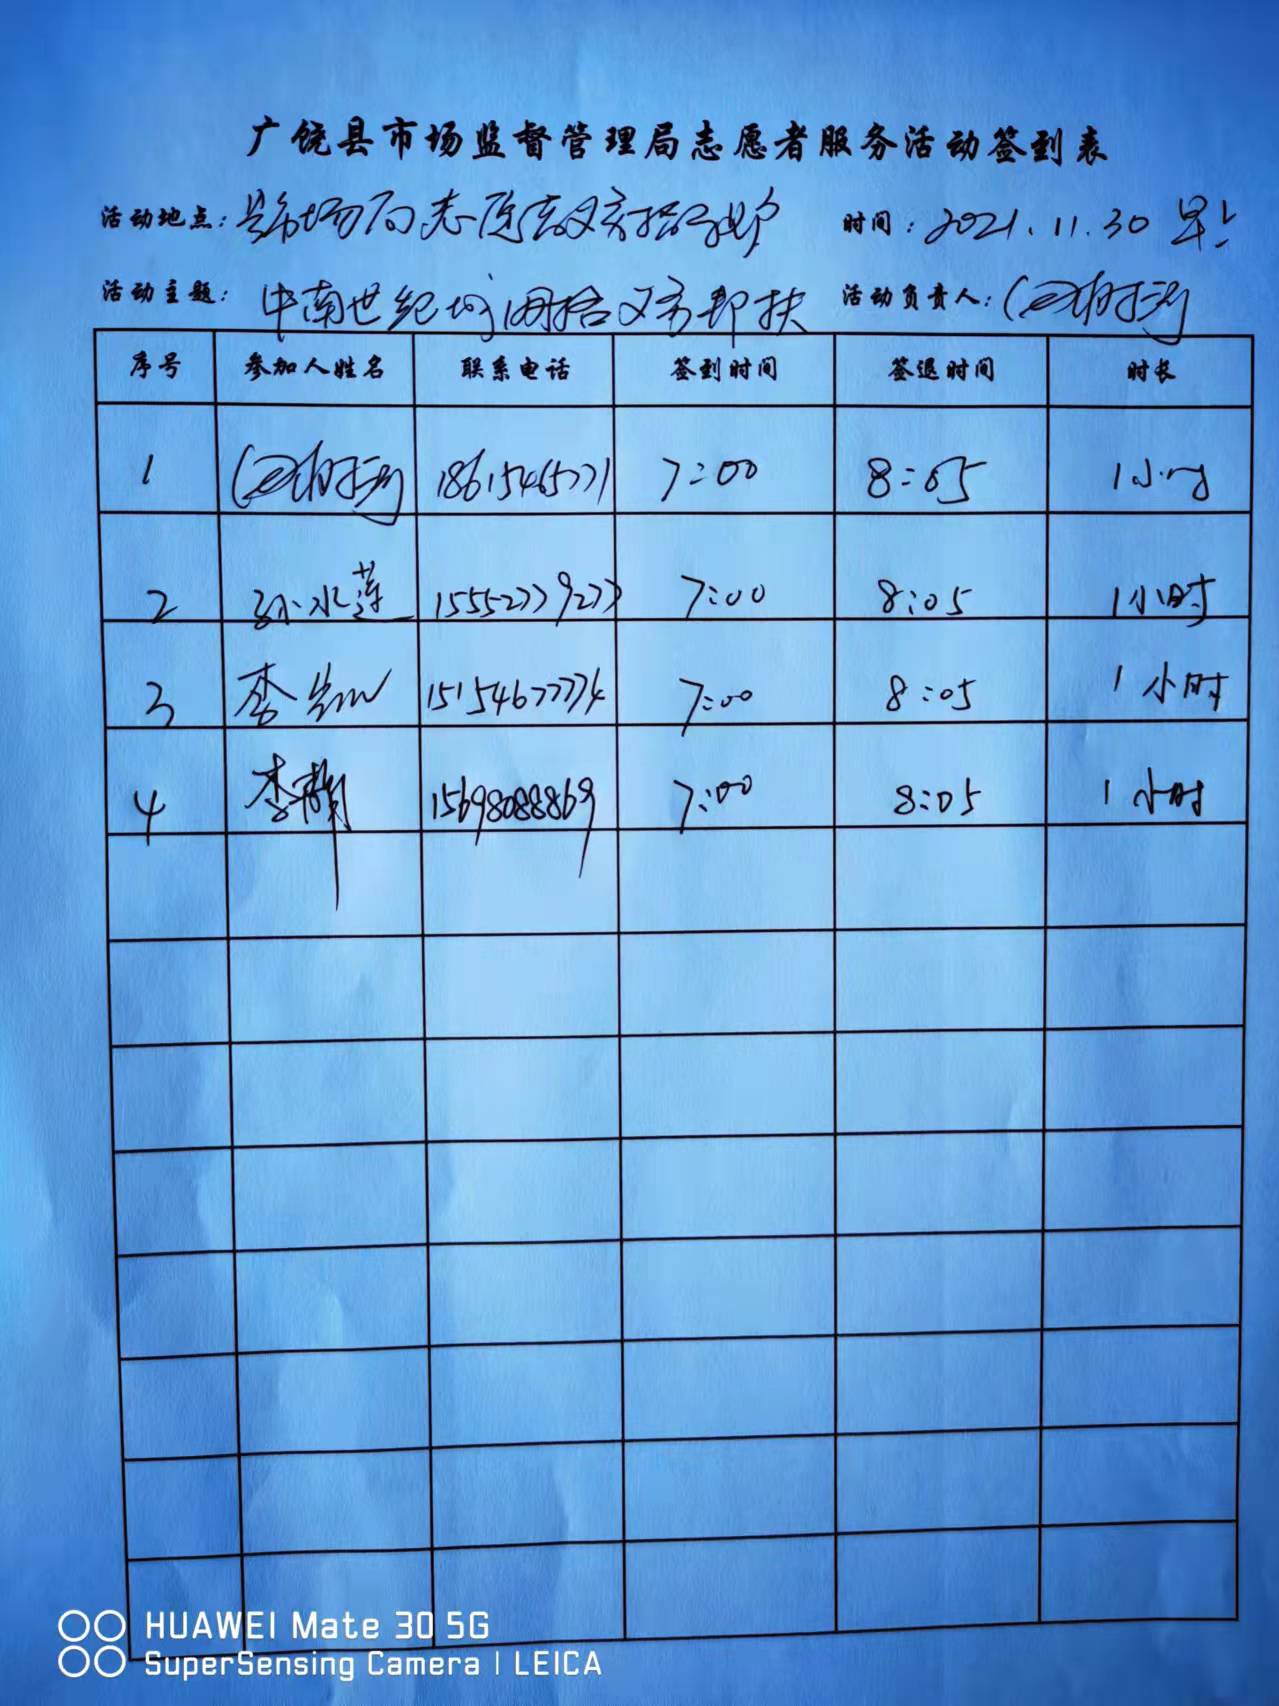 广饶县市场监督管理局志愿者服务活动签到表
活动地点: 县市场局志愿 时间: 2021.11.30 早上
活动主题: 中南世纪城网格义务帮扶 活动负责人:
序号 参加人姓名 联系电话 签到时间 签退时间 时长
1 18615465771 7:00 8:05 1小时
2 孙水莲 15552779277 7:00 8:05 1小时
3 李 15154677774 7:00 8:05 1小时
4 李 15698088869 7:00 8:05 1小时
HUAWEI Mate 30 5G
SuperSensing Camera | LEICA